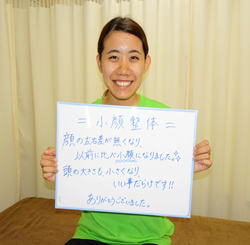 = 小顔整体 =
顔の左右差が無くなり、
以前に比べ小顔になりました。
頭の大きさも、小さくなり
いい事だらけです!!
ありがとうございました。